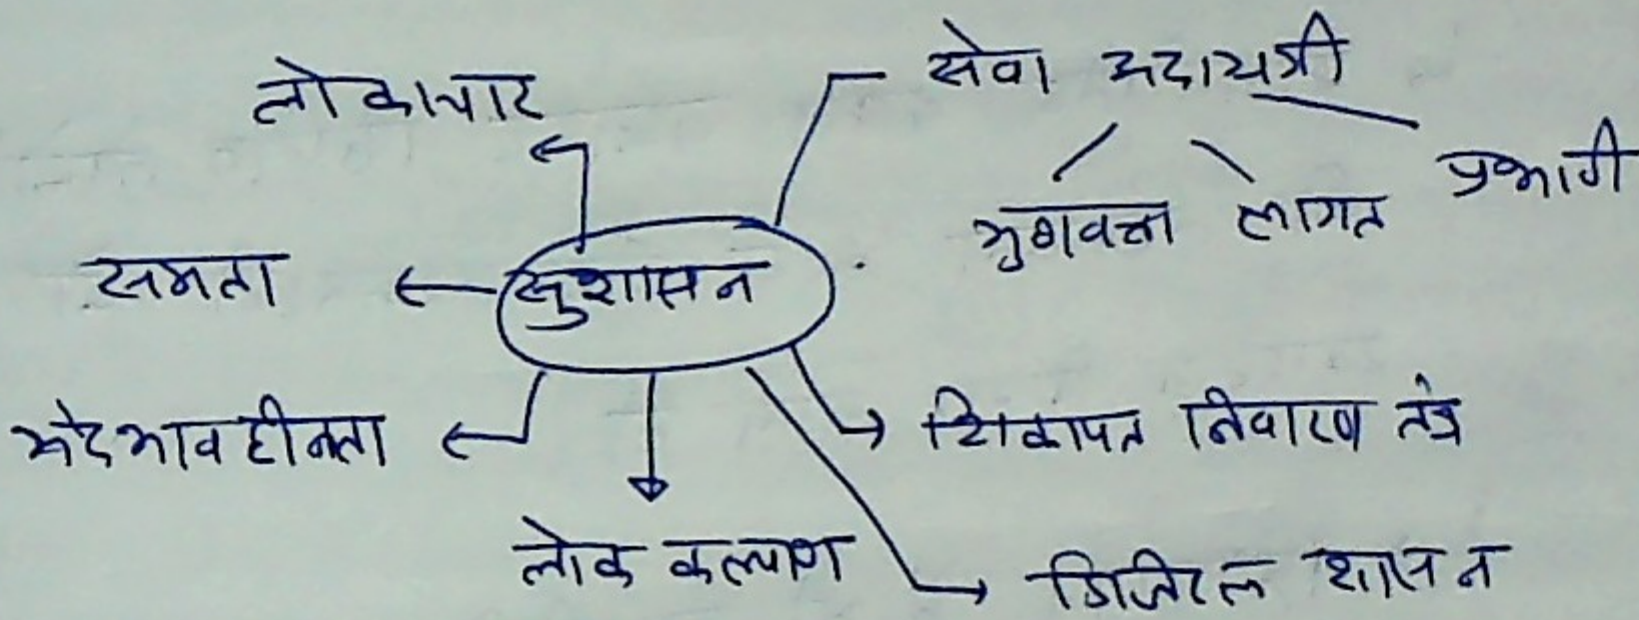 लोकाचार
सेवा अदायत्री
प्रभावी
गुणवत्ता लागत
समता
सुशासन
भेदभावहीनता
शिकायत निवारण तंत्र
लोक कल्याण
डिजिटल शासन